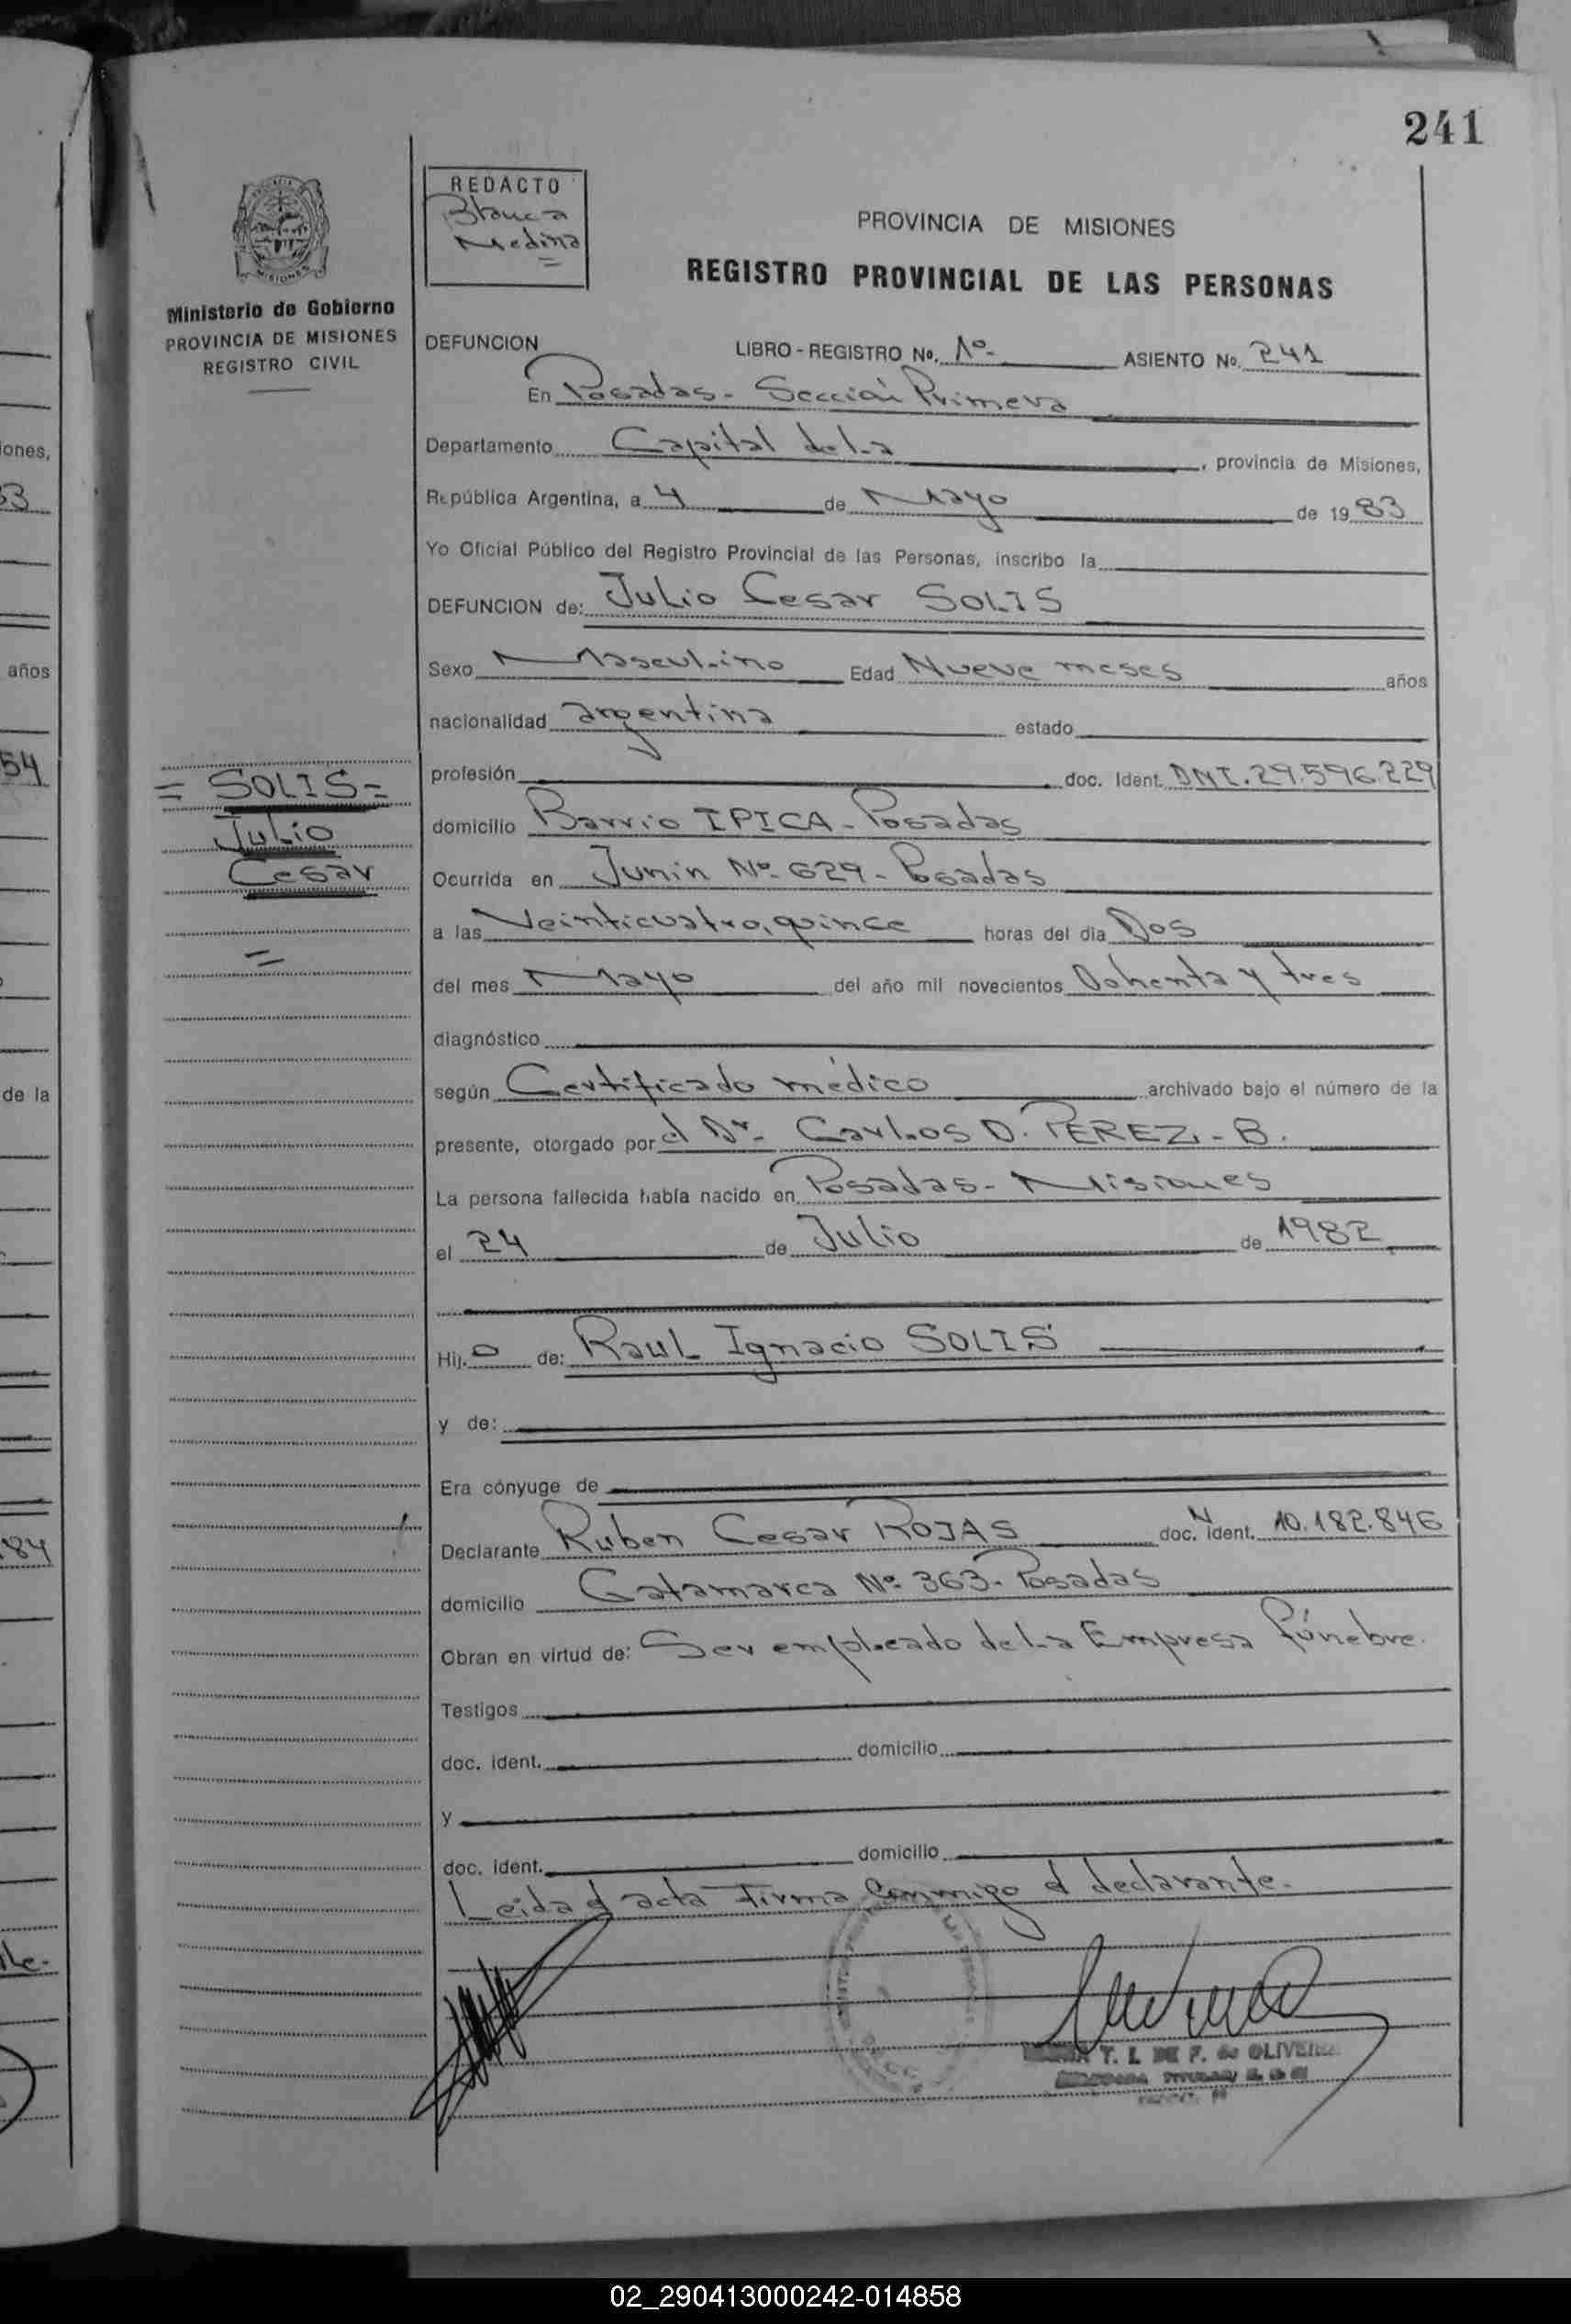 241
REDACTO
Blanca
Medina
PROVINCIA DE MISIONES
REGISTRO PROVINCIAL DE LAS PERSONAS
MISIONES
Ministerio de Gobierno
PROVINCIA DE MISIONES
REGISTRO CIVIL
DEFUNCION LIBRO - REGISTRO No. 1º- ASIENTO No. 241
En Posadas - Sección Primera
Departamento Capital de la, provincia de Misiones,
República Argentina, a 4 de Mayo de 1983
Yo Oficial Público del Registro Provincial de las Personas, inscribo la
DEFUNCION de: Julio Cesar SOLIS
Sexo Masculino Edad Nueve meses años
nacionalidad argentina estado
profesión doc. Ident. DNI. 29.596.229
= SOLIS =
Julio
Cesar
=
domicilio Barrio IPICA - Posadas
Ocurrida en Junin Nº 629 - Posadas
a las Veinticuatro, quince horas del día Dos
del mes Mayo del año mil novecientos Ochenta y tres
diagnóstico
según Certificado médico archivado bajo el número de la
presente, otorgado por el Dr. Carlos D. PEREZ, - B.
La persona fallecida había nacido en Posadas - Misiones
el 24 de Julio de 1982
Hij. o de: Raul Ignacio SOLIS
y de:
Era cónyuge de
Declarante Ruben Cesar ROJAS doc. N ident. 10.182.846
domicilio Catamarca Nº 363 - Posadas
Obran en virtud de: Ser empleado de la Empresa fúnebre.
Testigos
doc. ident. domicilio
y
doc. ident. domicilio
Leida el acta Firma Conmigo el declarante.
T. L. DE F. de OLIVEIRA
iones,
33
años
54
de la
184
02_290413000242-014858